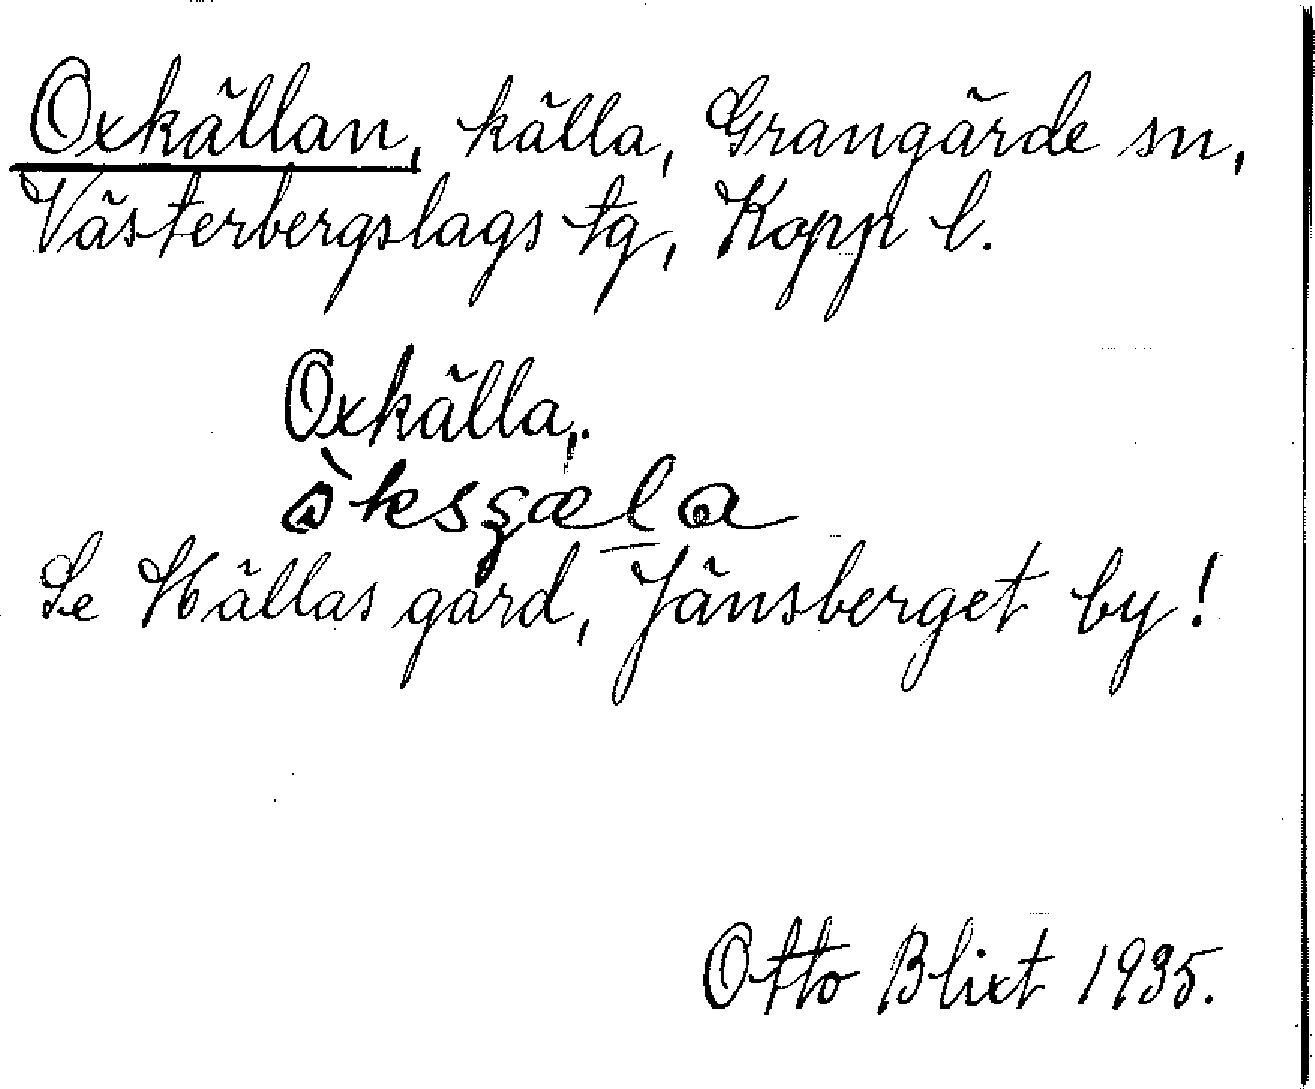 Oxkällan, källa, Grangärde sn,
Västerbergslags tg, Kopp l.
Oxkälla,.
òksʂæla
Se Hällas gård, Jänsberget by!
Otto Blixt 1935.